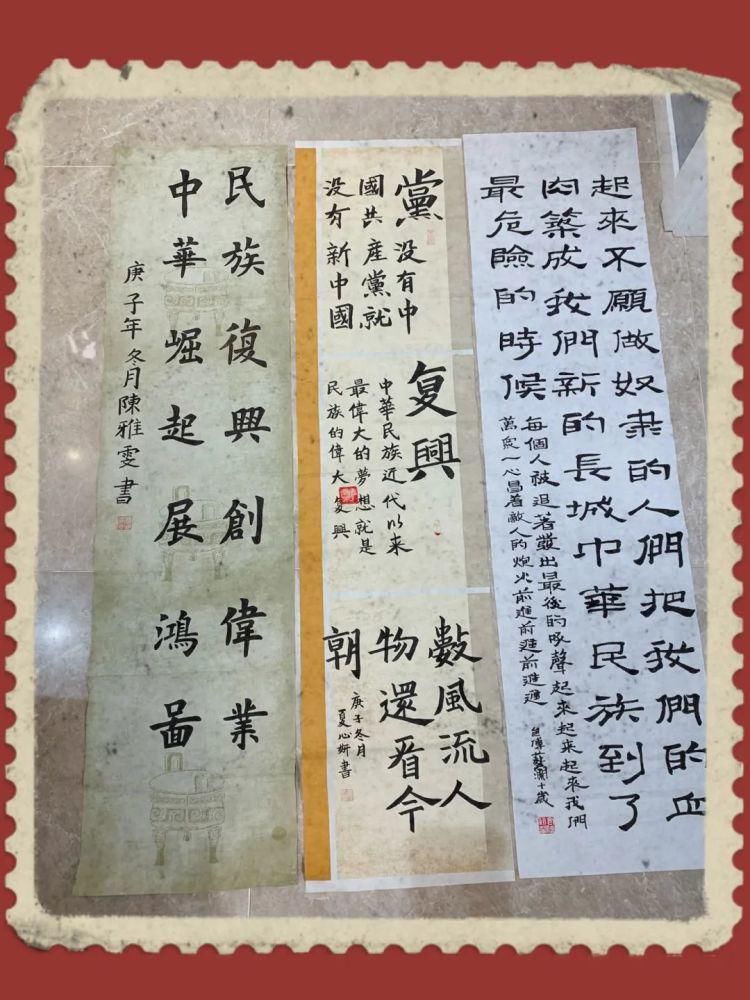 起來不願做奴隶的人們把我們的血
肉築成我們新的長城中華民族到了
最危險的時候
每個人被迫著發出最後的吼聲起來起來起來我們
萬眾一心冒着敵人的炮火前進前進前進進
藝瀾十歲
黨
没有中
國共產黨就
没有新中國
复興
中華民族近代以来
最偉大的夢想就是
民族的偉大复興
數風流人
物還看今
朝
庚子冬月
夏心妍書
民族復興創偉業
中華崛起展鴻啚
庚子年冬月陳雅雯書